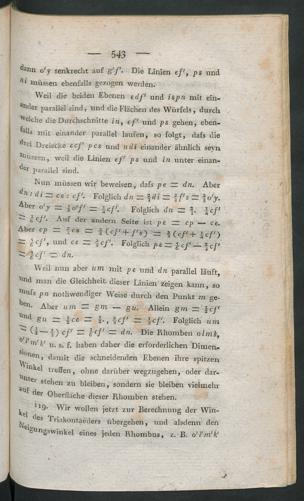 — 543 —
dann o'y senkrecht auf g'f'. Die Linien ef', ps und
ni müssen ebenfalls gezogen werden.
Weil die beiden Ebenen edf' und ispn mit ein-
ander parallel sind, und die Flächen des Würfels, durch
welche die Durchschnitte in, ef' und ps gehen, eben-
falls mit einander parallel laufen, so folgt, daß die
drei Dreiecke ecf' pcs und ndi einander ähnlich seyn
müssen, weil die Linien ef' ps und in unter einan-
der parallel sind.
Nun müssen wir beweisen, daß pe = dn. Aber
dn : di = ce : cf'. Folglich dn =
Aber o'y =
Auf der andern Seite ist pe = cp — ce.
Aber cp =
und ce = Folglich pe =
= dn.
Weil nun aber um mit pe und dn parallel läuft,
und man die Gleichheit dieser Linien zeigen kann, so
muß pn nothwendiger Weise durch den Punkt m ge-
hen. Aber um = gm — gu. Allein gm =
und gu = Folglich um
= = dn. Die Rhomben olmk,
o'l'm'k' u. s. f. haben daher die erforderlichen Dimen-
sionen, damit die schneidenden Ebenen ihre spitzen
Winkel treffen, ohne darüber wegzugehen, oder dar-
unter stehen zu bleiben, sondern sie bleiben vielmehr
auf der Oberfläche dieser Rhomben stehen.
119. Wir wollen jetzt zur Berechnung der Win-
kel des Triakontaeders übergehen, und alsdenn den
Neigungswinkel eines jeden Rhombus, z. B. o'l'm'k'